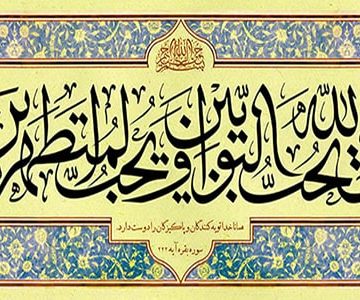 بسم الله الرحمن الرحیم
الله یحب التوابین و یحب المتطهرین
همانا خدا توبه کنندگان و پاکیزگان را دوست دارد.
سوره بقره آیه ۲۲۲